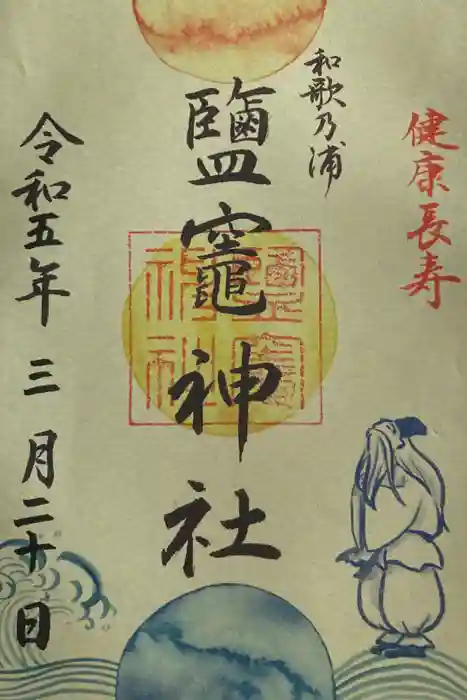 健康長寿
和歌乃浦
鹽竈神社
令和五年三月二十日
鹽竈神社